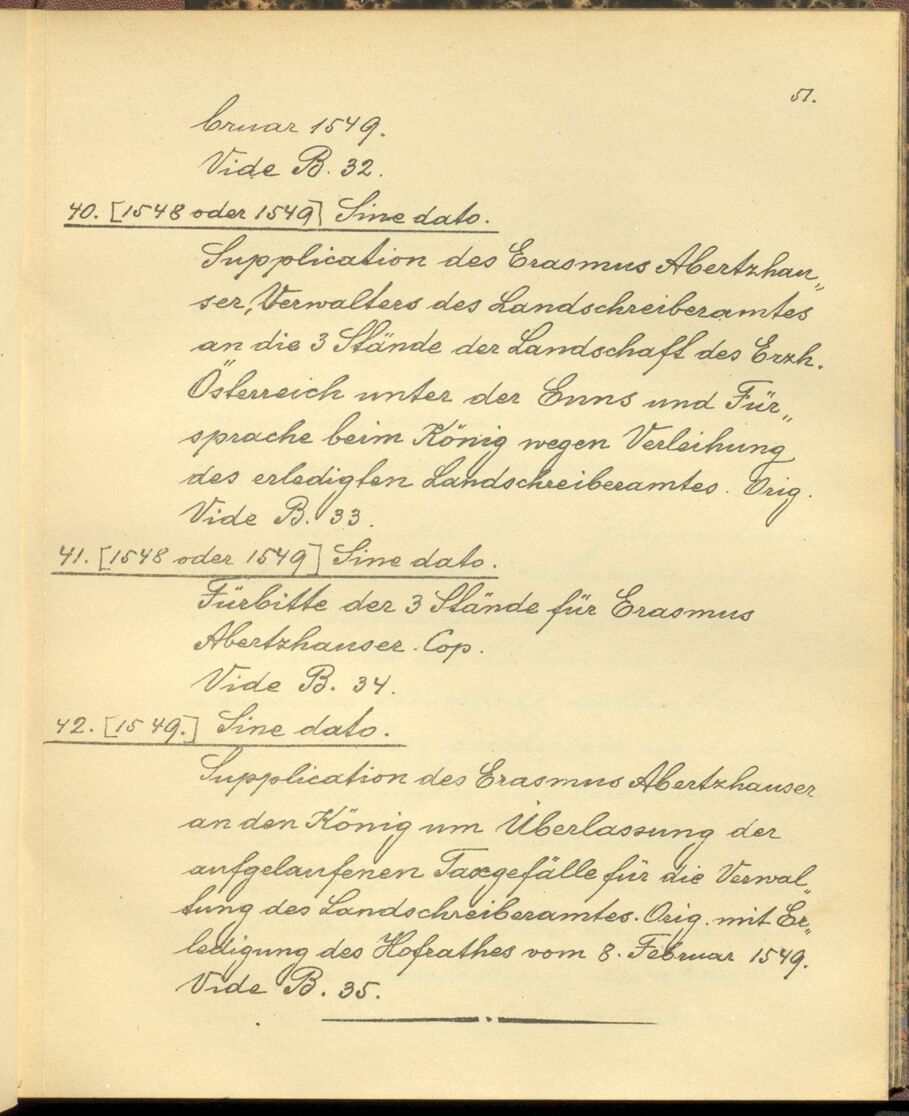 51.
bruar 1549.
Vide B. 32.
40. [1548 oder 1549] Sine dato.
Supplication des Erasmus Abertzhau„
ser, Verwalters des Landschreiberamtes
an die 3 Stände der Landschaft des Erzh.
Österreich unter der Enns und Für„
sprache beim König wegen Verleihung
des erledigten Landschreiberamtes. Orig.
Vide B. 33.
41. [1548 oder 1549] Sine dato.
Fürbitte der 3 Stände für Erasmus
Abertzhauser. Cop.
Vide B. 34.
42. [1549.] Sine dato.
Supplication des Erasmus Abertzhauser
an den König um Überlassung der
aufgelaufenen Taxgefälle für die Verwal„
tung des Landschreiberamtes. Orig. mit Er„
ledigung des Hofrathes vom 8. Februar 1549.
Vide B. 35.